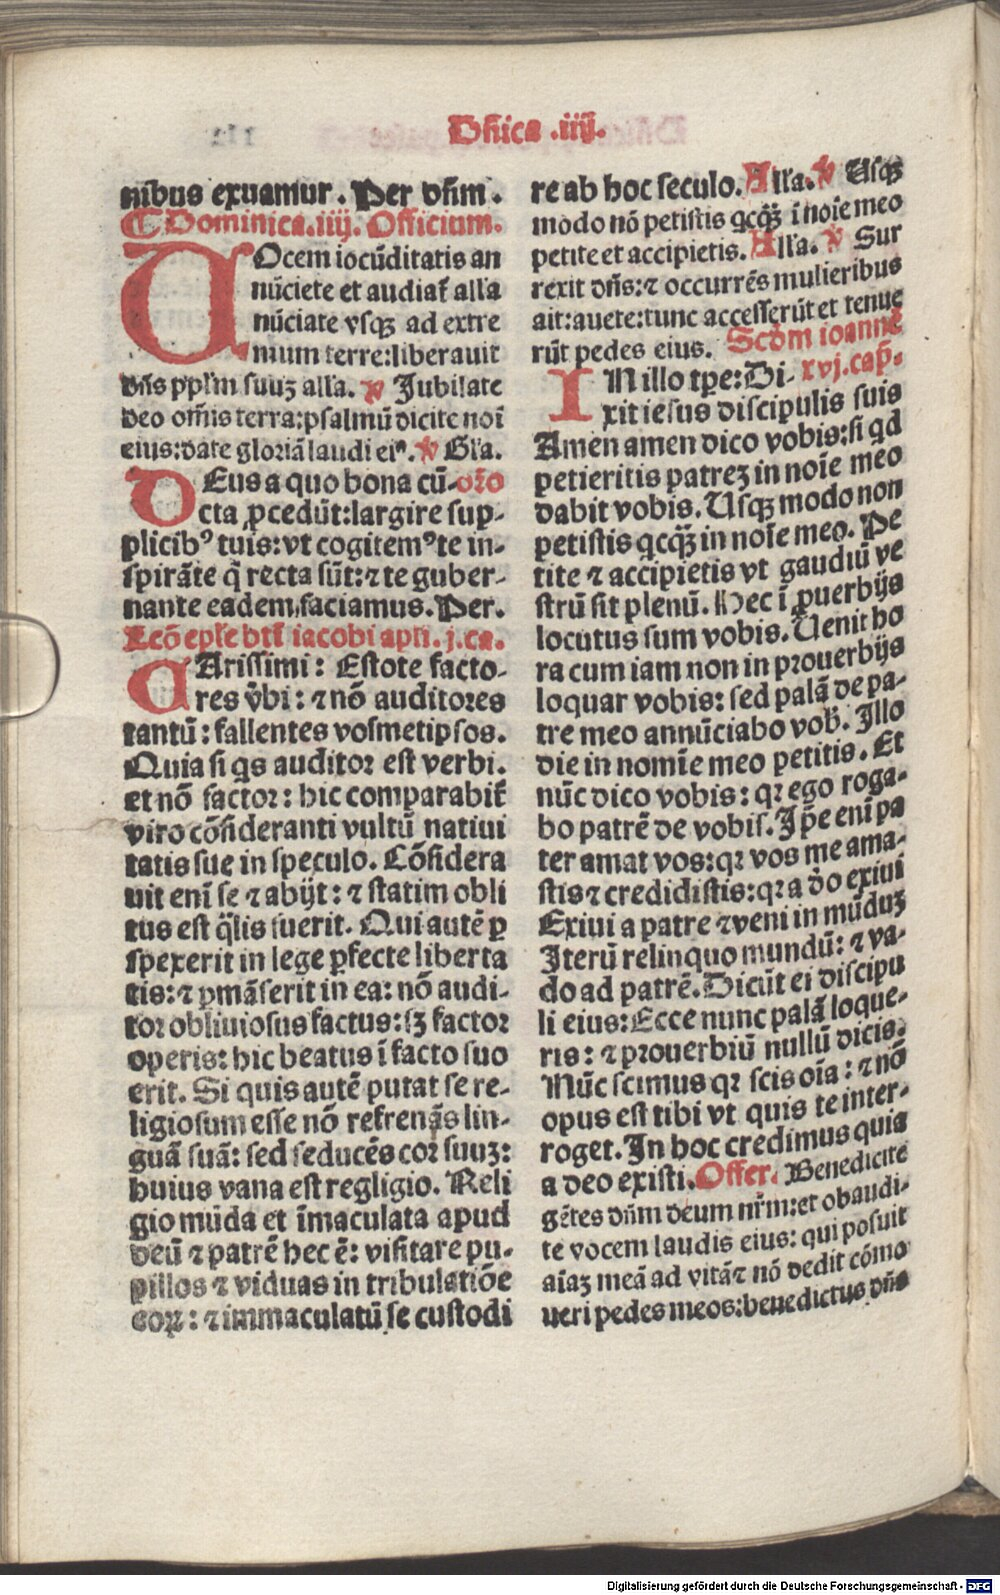 Dñica .iiij.
nibus exuamur. Per dñm.
¶ Dominica.iiij. Officium.
VOcem iocũditatis an
nũciete et audiat᷑ alľa
nũciate vsqꝫ ad extre
mum terre:liberauit
dñs ppľm suuꝫ alľa. ℣ Jubilate
deo om̃is terra:psalmũ dicite noĩ
eius:date gloriã laudi eiꝰ. ℣ Gľa.
DEus a quo bona cũ- oŕo
cta ꝓcedũt:largire sup-
plicibꝰ tuis:vt cogitemꝰ te in-
spirãte q̃ recta sũt:⁊ te guber-
nante eadem faciamus. Per.
Lcõ epľe btĩ iacobi apľi. j.ca.
CArissimi: Estote facto-
res v̾bi: ⁊ nõ auditores
tantũ: fallentes vosmetipsos.
Quia si qs auditor est verbi.
et nõ factor: hic comparabit᷑
viro cõsideranti vultũ natiui
tatis sue in speculo. Cõsidera
uit enĩ se ⁊ abijt: ⁊ statim obli
tus est q̃lis fuerit. Qui autẽ ꝑ
spexerit in lege ꝑfecte liberta
tis: ⁊ ꝑmãserit in ea: nõ audi-
tor obliuiosus factus: sꝫ factor
operis: hic beatus ĩ facto suo
erit. Si quis autẽ putat se re-
ligiosum esse nõ refrenãs lin-
guã suã: sed seducẽs cor suuꝫ:
huius vana est regligio. Reli
gio mũda et ĩmaculata apud
deũ ⁊ patrẽ hec ẽ: visitare pu-
pillos ⁊ viduas in tribulatiõe
eoꝝ: ⁊ immaculatũ se custodi
re ab hoc seculo. Alľa. ℣ Usqꝫ
modo nõ petistis qcqꝫ̃ ĩ noĩe meo
petite et accipietis. Alľa. ℣ Sur
rexit dñs: ⁊ occurrẽs mulieribus
ait:auete:tunc accesserũt et tenue
rũt pedes eius. Scd̃m ioannẽ
IN illo tꝑe: Di- xvj.cap̃.
xit iesus discipulis suis
Amen amen dico vobis:si qd
petieritis patreꝫ in noĩe meo
dabit vobis. Usqꝫ modo non
petistis qcqꝫ̃ in noĩe meo. Pe
tite ⁊ accipietis vt gaudiũ ve
strũ sit plenũ. Hec ĩ ꝓuerbijs
locutus sum vobis. Uenit ho
ra cum iam non in prouerbijs
loquar vobis: sed palã de pa-
tre meo annũciabo vob̃. Illo
die in nomĩe meo petitis. Et
nũc dico vobis: qꝛ ego roga-
bo patrẽ de vobis. Ip̃e enĩ pa
ter amat vos:qꝛ vos me ama-
stis ⁊ credidistis:qꝛ a dõ exiui
Exiui a patre ⁊ veni in mũduꝫ
Iterũ relinquo mundũ: ⁊ va-
do ad patrẽ. Dicũt ei discipu
li eius: Ecce nunc palã loque-
ris: ⁊ prouerbiũ nullũ dicis.
Nũc scimus qꝛ scis oĩa: ⁊ nõ
opus est tibi vt quis te inter-
roget. In hoc credimus quia
a deo existi. Offer. Benedicite
gẽtes dñm deum nr̃m:et obaudi-
te vocem laudis eius: qui posuit
aĩaꝫ meã ad vitã ⁊ nõ dedit cõmo
ueri pedes meos:benedictus dñs
Digitalisierung gefördert durch die Deutsche Forschungsgemeinschaft - DFG